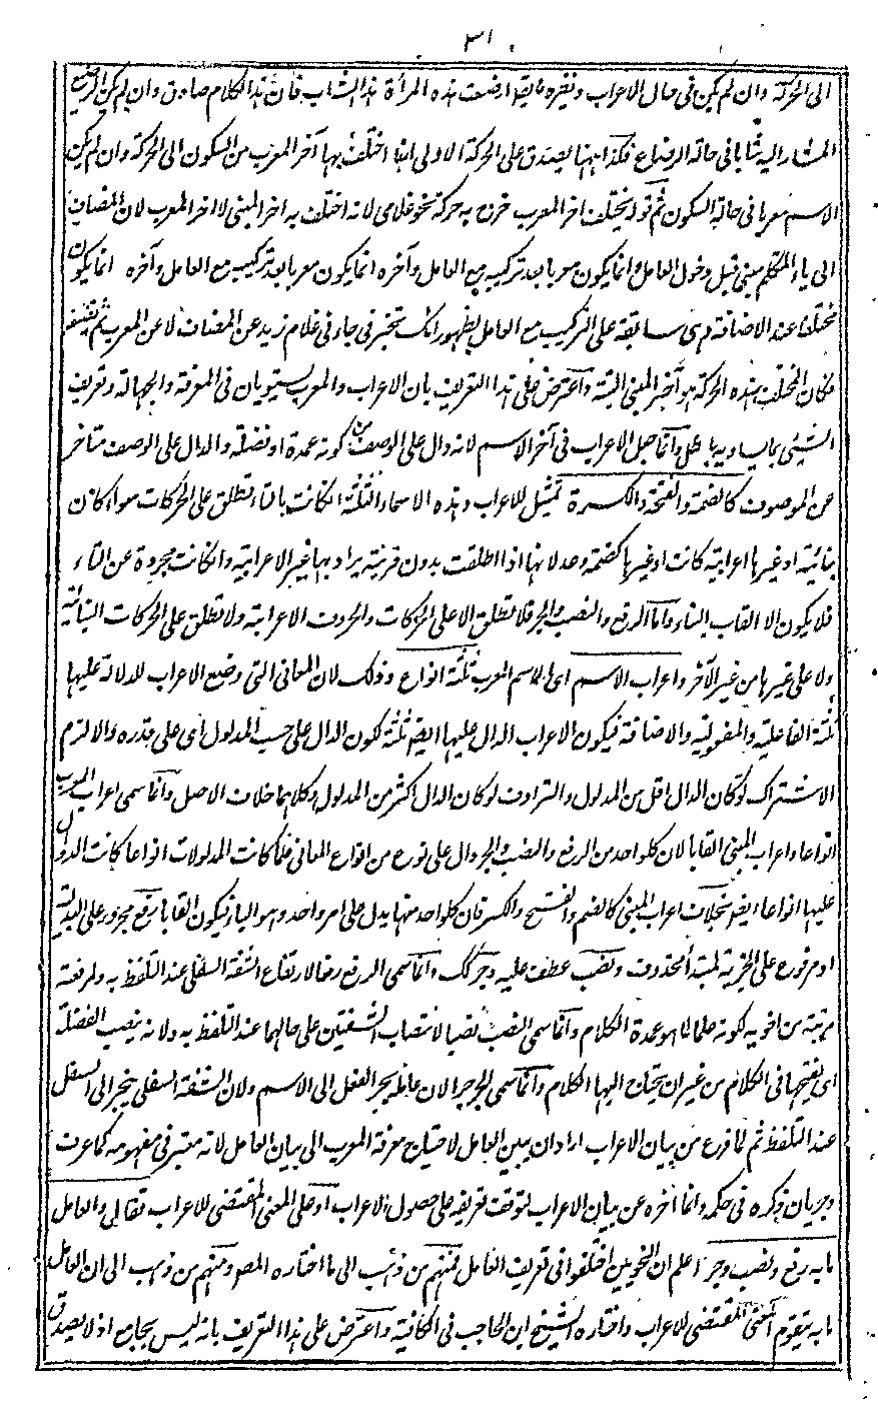 ٣١
الى الحركة وان لم يكن فى حال الاعراب ونظيره ما يقال ارضعت هذه المرأة هذا الشاب فان هذا الكلام صادق وان لم يكن الرضيع
المشار اليه شابا فى حالة الرضاع فكذا ههنا يصدق على الحركة الاولى انها اختلف بها آخر المعرب من السكون الى الحركة وان لم يكن
الاسم معربا فى حالة السكون ثم قوله يختلف اخر المعرب خرج به حركة نحو غلامى لانه اختلف به اخر المبنى لا اخر المعرب لان المضاف
الى ياء المتكلم مبنى قبل دخول العامل وانما يكون معربا بعد تركيبه مع العامل وآخره انما يكون معربا بعد تركيبه مع العامل وآخره انما يكون
مختلفا عند الاضافة وهى سابقة على التركيب مع العامل لظهور انك تخبر فى جاءنى غلام زيد عن المضاف لا عن المعرب ثم يضيف
فكان المختلف بهذه الحركة هو آخر المبنى البتة واعترض على هذا التعريف بان الاعراب والمعرب يستويان فى المعرفة والجهالة وتعريف
الشيئى بما يساويه باطل وانما جعل الاعراب فى آخر الاسم لانه دال على الوصف من كونه عمدة او فضلة والدال على الوصف متأخر
عن الموصوف كالضمة والفتحة والكسرة تمثيل للاعراب وهذه الاسماء الثلثة اذا كانت بالتاء تطلق على الحركات سواء كان
بنائية او غيرها اعرابية كانت او غيرها كضمة وعد لانها اذا اطلقت بدون قرينة يراد بها غير الاعرابية وان كانت مجردة عن التاء
فلا يكون الا القاب البناء واما الرفع والنصب والجر فلا تطلق الا على الحركات والحروف الاعرابية ولا تطلق على الحركات البنائية
ولا على غيرها من غير الآخر واعراب الاسم اى الاسم المعرب ثلثة انواع وذلك لان المعانى التى وضع الاعراب للدلالة عليها
ثلثة الفاعلية والمفعولية والاضافة فيكون الاعراب الدال عليها ايضا ثلثة لكون الدال على حسب المدلول اى على قدره والا لزم
الاشتراك لو كان الدال اقل من المدلول والترادف لو كان الدال اكثر من المدلول وكلاهما خلاف الاصل وانما سمى اعراب المعرب
انواعا واعراب المبنى القابا لان كل واحد من الرفع والنصب والجر دال على نوع من انواع المعانى فلما كانت المدلولات انواعا كانت الدوال
عليها انواعا ايضا بخلاف اعراب المبنى كالضم والفتح والكسر فان كل واحد منها يدل على امر واحد وهو البناء فيكون القابا رفع مجرور على البدلية
او مرفوع على الخبرية لمبتدأ محذوف ونصب عطف عليه وجر كذلك وانما سمى الرفع رفعا لارتفاع الشفة السفلى عند التلفظ به ولرفعة
مرتبة من اخويه لكونه علما لما هو عمدة الكلام وانما سمى النصب نصبا لانتصاب الشفتين على حالهما عند التلفظ به ولانه ينصب الفضلة
اى يفتحها فى الكلام من غير ان يحتاج اليها الكلام وانما سمى الجر جرا لان عامله يجر الفعل الى الاسم ولان الشفة السفلى ينجر الى السفل
عند التلفظ ثم لما فرغ من بيان الاعراب اراد ان يبين العامل لاحتياج معرفة المعرب الى بيان العامل لانه معتبر فى مفهومه كما عرفت
وجريان ذكره فى حكمه وانما اخره عن بيان الاعراب لتوقف تعريفه على حصول الاعراب او على المعنى المقتضى للاعراب فقال والعامل
ما به رفع ونصب وجر اعلم ان النحويين اختلفوا فى تعريف العامل فمنهم من ذهب الى ما اختاره المص ومنهم من ذهب الى ان العامل
ما به يتقوم المعنى المقتضى للاعراب واختاره الشيخ ابن الحاجب فى الكافية واعترض على هذا التعريف بانه ليس بجامع اذ لا يصدق